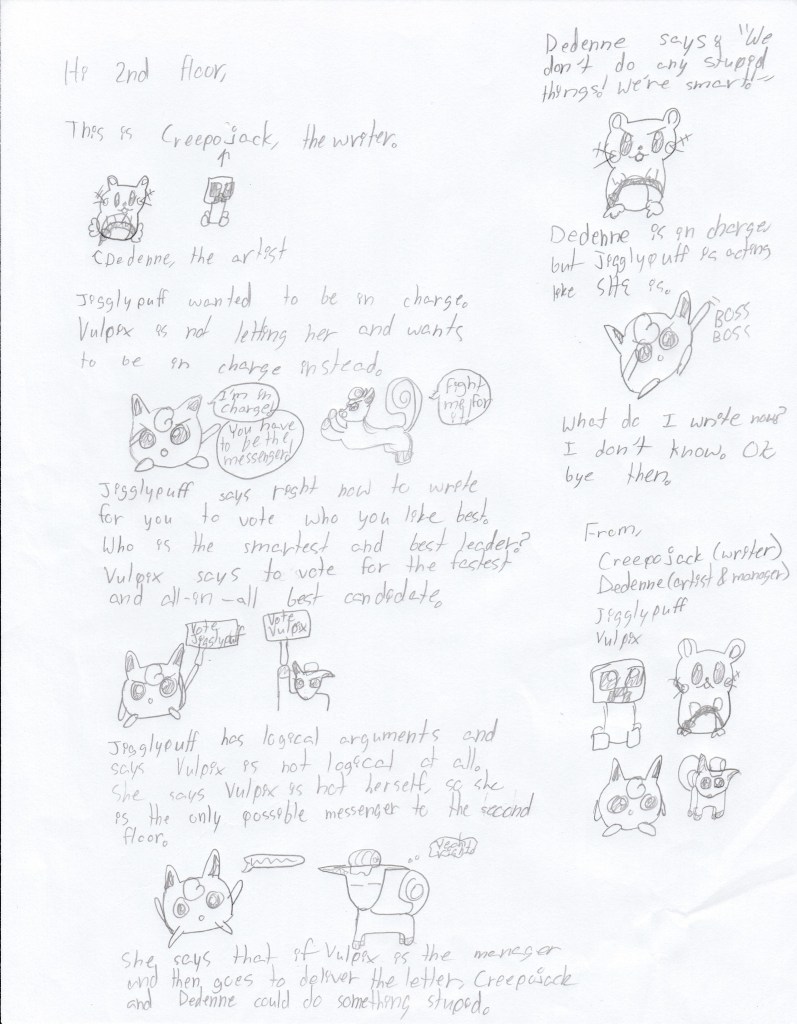 Hi 2nd floor,
This is Creepojack, the writer.
Dedenne, the artist
Jigglypuff wanted to be in charge.
Vulpix is not letting her and wants
to be in charge instead.
I'm in
charge!
You have
to be the
messenger!
Fight
me for
it!
Jigglypuff says right now to write
for you to vote who you like best.
Who is the smartest and best leader?
Vulpix says to vote for the fastest
and all-in-all best candidate.
Vote
Jigglypuff
Vote
Vulpix
Jigglypuff has logical arguments and
says Vulpix is not logical at all.
She says Vulpix is not herself, so she
is the only possible messenger to the second
floor.
She says that if Vulpix is the manager
and then goes to deliver the letter, Creepojack
and Dedenne could do something stupid.
Dedenne says: "We
don't do any stupid
things! We're smart!"
Dedenne is in charge,
but Jigglypuff is acting
like SHE is.
BOSS
BOSS
What do I write now?
I don't know. OK
bye then.
From,
Creepojack (writer)
Dedenne (artist & manager)
Jigglypuff
Vulpix